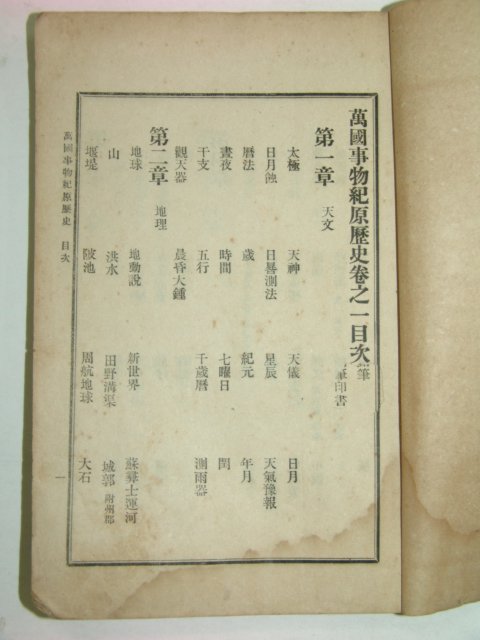 萬國事物紀原歷史卷之一目次
筆
筆印書
第一章 天文
太極 天神 天儀 日月
日月蝕 日晷測法 星辰 天氣豫報
曆法 歲 紀元 年月
晝夜 時間 七曜日 閏
干支 五行 千歲曆 測雨器
觀天器 晨昏大鍾
第二章 地理
地球 地動說 新世界 蘇彝士運河
山 洪水 田野溝渠 城郭 附州郡
堰堤 陂池 周航地球 大石
萬國事物紀原歷史 目次 一